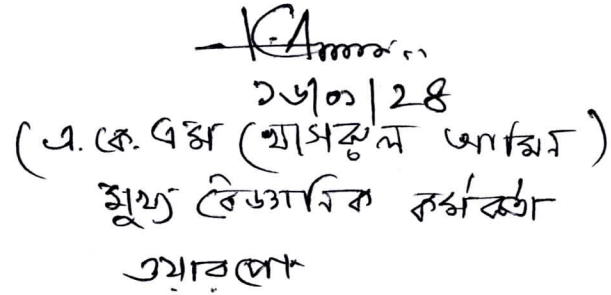 ১৬/০১/২৪
(এ. কে. এম খোসরুল আমিন)
মুখ্য বৈজ্ঞানিক কর্মকর্তা
ওয়ারপো